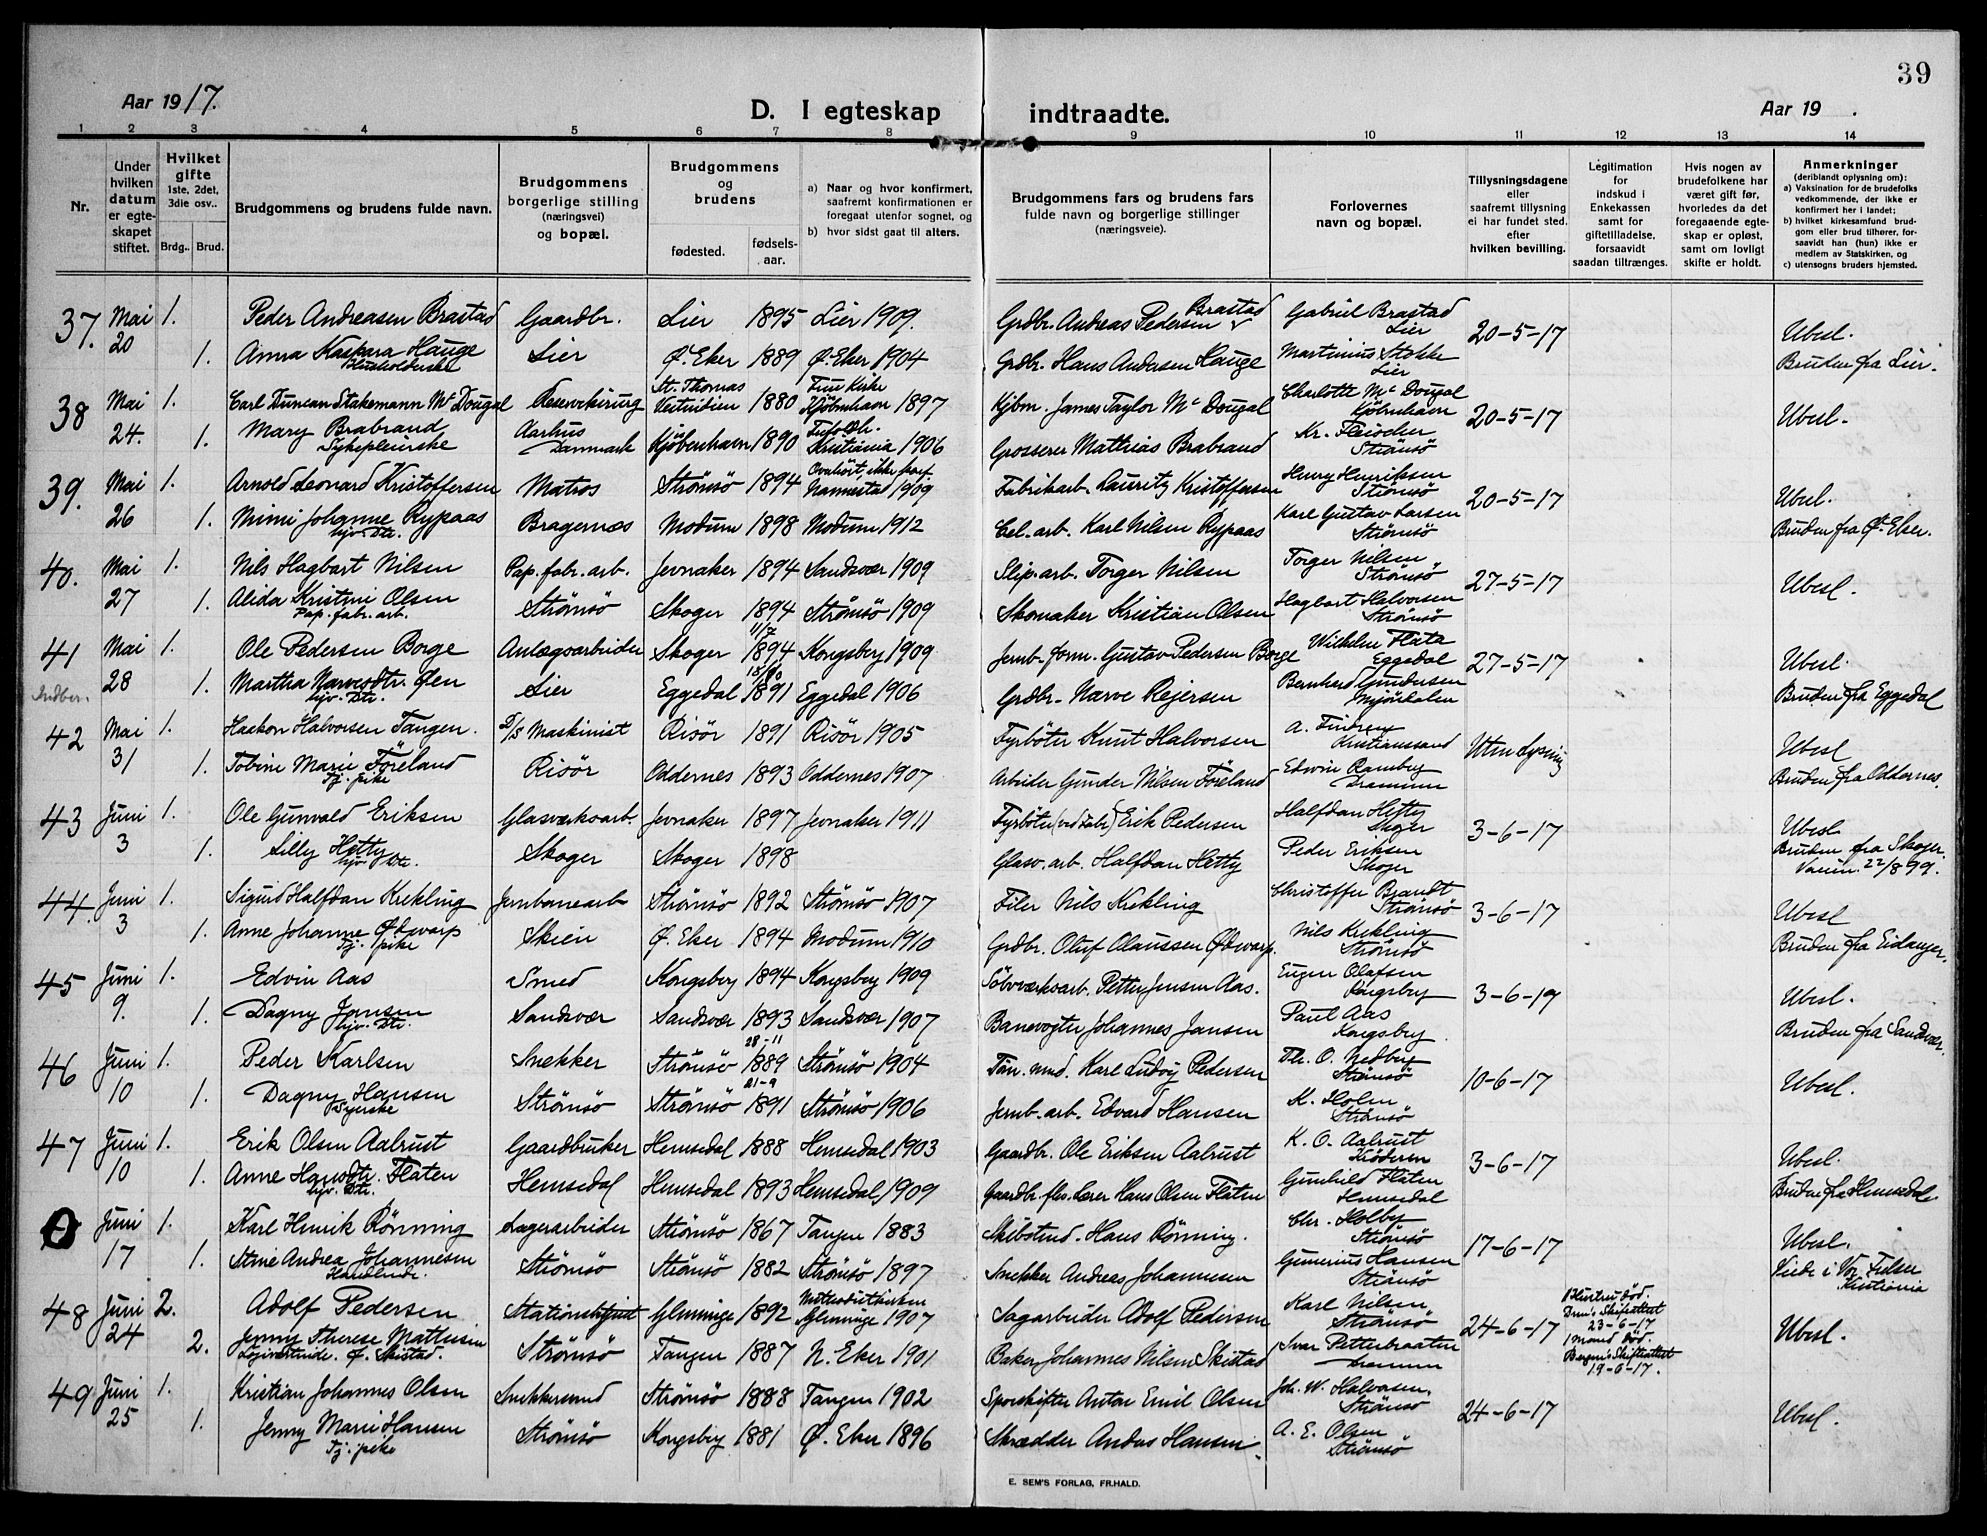 39
Aar 1917.
D. I egteskap indtraadte.
Aar 19 .
1 2 3 4 5 6 7 8 9 10 11 12 13 14
Nr.
Under hvilken datum er egteskapet stiftet.
Hvilket gifte 1ste, 2det, 3die osv..
Brdg.. Brud.
Brudgommens og brudens fulde navn.
Brudgommens borgerlige stilling (næringsvei) og bopæl.
Brudgommens og brudens
fødested. fødsels-aar.
a) Naar og hvor konfirmert, saafremt konfirmationen er foregaat utenfor sognet, og
b) hvor sidst gaat til alters.
Brudgommens fars og brudens fars fulde navn og borgerlige stillinger (næringsveie).
Forlovernes navn og bopæl.
Tillysningsdagene eller saafremt tillysning ei har fundet sted, efter hvilken bevilling.
Legitimation for indskud i Enkekassen samt for giftetilladelse, forsaavidt saadan tiltrænges.
Hvis nogen av brudefolkene har været gift før, hvorledes da det foregaaende egteskap er opløst, samt om lovligt skifte er holdt.
Anmerkninger (deriblandt oplysning om):
a) Vaksination for de brudefolks vedkommende, der ikke er konfirmert her i landet;
b) hvilket kirkesamfund brudgom eller brud tilhører, forsaavidt han (hun) ikke er medlem av Statskirken, og
c) utensogns bruders hjemsted.
37. Mai 20 1. Peder Andreasen Brastad Gaardbr. Lier 1895 Lier 1909. Grdbr. Andreas Pedersen Brastad Gabriel Brastad Lier 20-5-17 Ubesl.
1. Anna Kaspara Hauge Husholderske Lier Ø. Eker 1889 Ø. Eker 1904 Grdbr. Hans Andersen Hauge Martinius Stokke Lier Bruden fra Lier.
38 Mai 24. 1. Carl Duncan Stakemann Mc Dougal Reservekirurg St. Thomas Vestindien 1880 Frue Kirke Kjöbenhavn 1897 Kjbm. James Taylor Mc Dougal Charlotte Mc Dougal Kjöbenhavn 20-5-17 Ubesl.
1. Mary Brabrand Sykepleierske Aarhus Danmark Kjöbenhavn 1890 Kristiania 1906 Grosserer Mathias Brabrand Kr. Fleischer Strömsö
39. Mai 26 1. Arnold Leonard Kristoffersen Matros Strömsö 1894 Nannestad 1909 Fabrikarb. Lauritz Kristoffersen Henry Henriksen Strömsö 20-5-17 Ubesl.
1. Mimi Johanne Rypaas hjv. Dtr. Bragernæs Modum 1898 Modum 1912 Cel. arb. Karl Nilsen Rypaas Karl Gustav Larsen Strömsö Bruden fra Ø. Eker.
40. Mai 27 1. Nils Hagbart Nilsen Pap. fabr. arb. Jevnaker 1894 Sandsvær 1909 Slip. arb. Torger Nilsen Torger Nilsen Strömsö 27-5-17 Ubesl.
1. Alida Kristine Olsen Pap. fabr. arb. Strömsö Skoger 1894 Strömsö 1909 Skomaker Kristian Olsen Hagbart Halvorsen Strömsö
41 Mai 28 1. Ole Pedersen Borge Anlægsarbeider Skoger 11/7 1894 Kongsberg 1909 Jernb. form. Gustav Pedersen Borge Wilhelm Flata Eggedal 27-5-17 Ubesl.
Indber. 1. Martha Narvesdtr. Øen hjv. Dtr. Lier Eggedal 1891 Eggedal 1906 Grdbr. Narve Reiersen Bernhard Gundersen Mjöndalen Bruden fra Eggedal
42 Mai 31 1. Haakon Halvorsen Tangen. D/S Maskinist Risör 1891 Risör 1905 Fyrböter Knut Halvorsen A. Kristianssand Uten lysning Ubesl
1. Tobine Marie Föreland Tj. pike Risör Oddernes 1893 Oddernes 1907 Arbeider Gunder Nilsen Föreland Edvin Ramberg Drammen Bruden fra Oddernes.
43 Juni 3 1. Ole Gunvald Eriksen Glasværksarb. Jevnaker 1897 Jevnaker 1911 Fyrböter Erik Pedersen Halfdan Hetty Skoger 3-6-17 Ubesl.
1. Lilly Hetty hjv. Dtr. Skoger Skoger 1898 Glasv. arb. Halfdan Hetty Peder Eriksen Skoger Bruden fra Skoger. Vaccin. 22/8 99.
44. Juni 3 1. Sigurd Halfdan Krekling Jernbanearb Strömsö 1892 Strömsö 1907 Filer Nils Krekling Christoffer Brandt Strömsö 3-6-17 Ubesl
1. Anne Johanne Ødevarp Tj. pike Skien Ø. Eker 1894 Modum 1910 Grdbr. Oluf Olaussen Ødevarp. Nils Krekling Strömsö Bruden fra Eidanger.
45 Juni 9. 1. Edvin Aas Smed Kongsberg 1894 Kongsberg 1909 Sölvværksarb. Petter Jensen Aas. Eugen Olafsen Kongsberg 3-6-17 Ubesl.
1. Dagny Jansen hjv. Dtr. Sandsvær Sandsvær 1893 Sandsvær 1907 Banevogter Johannes Jansen Paul Aas Kongsberg. Bruden fra Sandsvær.
46 Juni 10 1. Peder Karlsen Snekker Strömsö 28-11 1889 Strömsö 1904 Karl Ludvig Pedersen Th. O. Nedberg Strömsö 10-6-17 Ubesl.
1. Dagny Hansen Syerske Strömsö Strömsö 21-9 1891 Strömsö 1906 Jernb. arb. Edvard Hansen K. Holm Strömsö
47 Juni 10 1. Erik Olsen Aalrust Gaardbruker Hemsedal 1888 Hemsedal 1903 Gaardbr. Ole Eriksen Aalrust K. O. Aalrust Kröderen 3-6-17 Ubesl.
1. Anne Hansdtr. Flaten hjv. Dtr. Hemsedal Hemsedal 1893 Hemsedal 1909 Gaardbr. fhs. Lærer Hans Olsen Flaten Gunhild Flaten Hemsedal Bruden fra Hemsedal
0 Juni 17 1. Karl Henrik Rönning Lagerarbeider Strömsö 1867 Tangen 1883 Skibstmd. Hans Rönning. Chr. Holby Strömsö 17-6-17 Ubesl.
1. Stine Andrea Johannesen Handlende. Strömsö Strömsö 1882 Strömsö 1897 Snekker Andreas Johannesen Gunerius Hansen Strömsö Viede i Vor Frelser Kristiania
48 Juni 24 2. Adolf Pedersen Stationsbetjent Glemminge 1892 Metodistkirken Glemminge 1907 Sagarbeider Adolf Pedersen Karl Nilsen Strömsö 24-6-17 Hustru död. Drm's Skifteattest 23-6-17 Ubesl.
2. Jenny Therese Mathisen Logivertinde. f. Skistad. Strömsö Tangen 1887 N. Eker 1901 Baker Johannes Nilsen Skistad Ivar Petterbraaten Drammen 1 Mand död. Bergens Skifteattest 19-6-17.
49 Juni 25 1. Kristian Johannes Olsen Snekkersvend Strömsö 1888 Tangen 1902 Sporskifter Anton Emil Olsen Joh. W. Halvorsen. Strömsö 24-6-17 Ubesl.
1. Jenny Marie Hansen Tj. pike Strömsö Kongsberg 1881 Ø. Eker 1896 Skrædder Anders Hansen A. E. Olsen Strömsö
E. SEM'S FORLAG, FR.HALD.